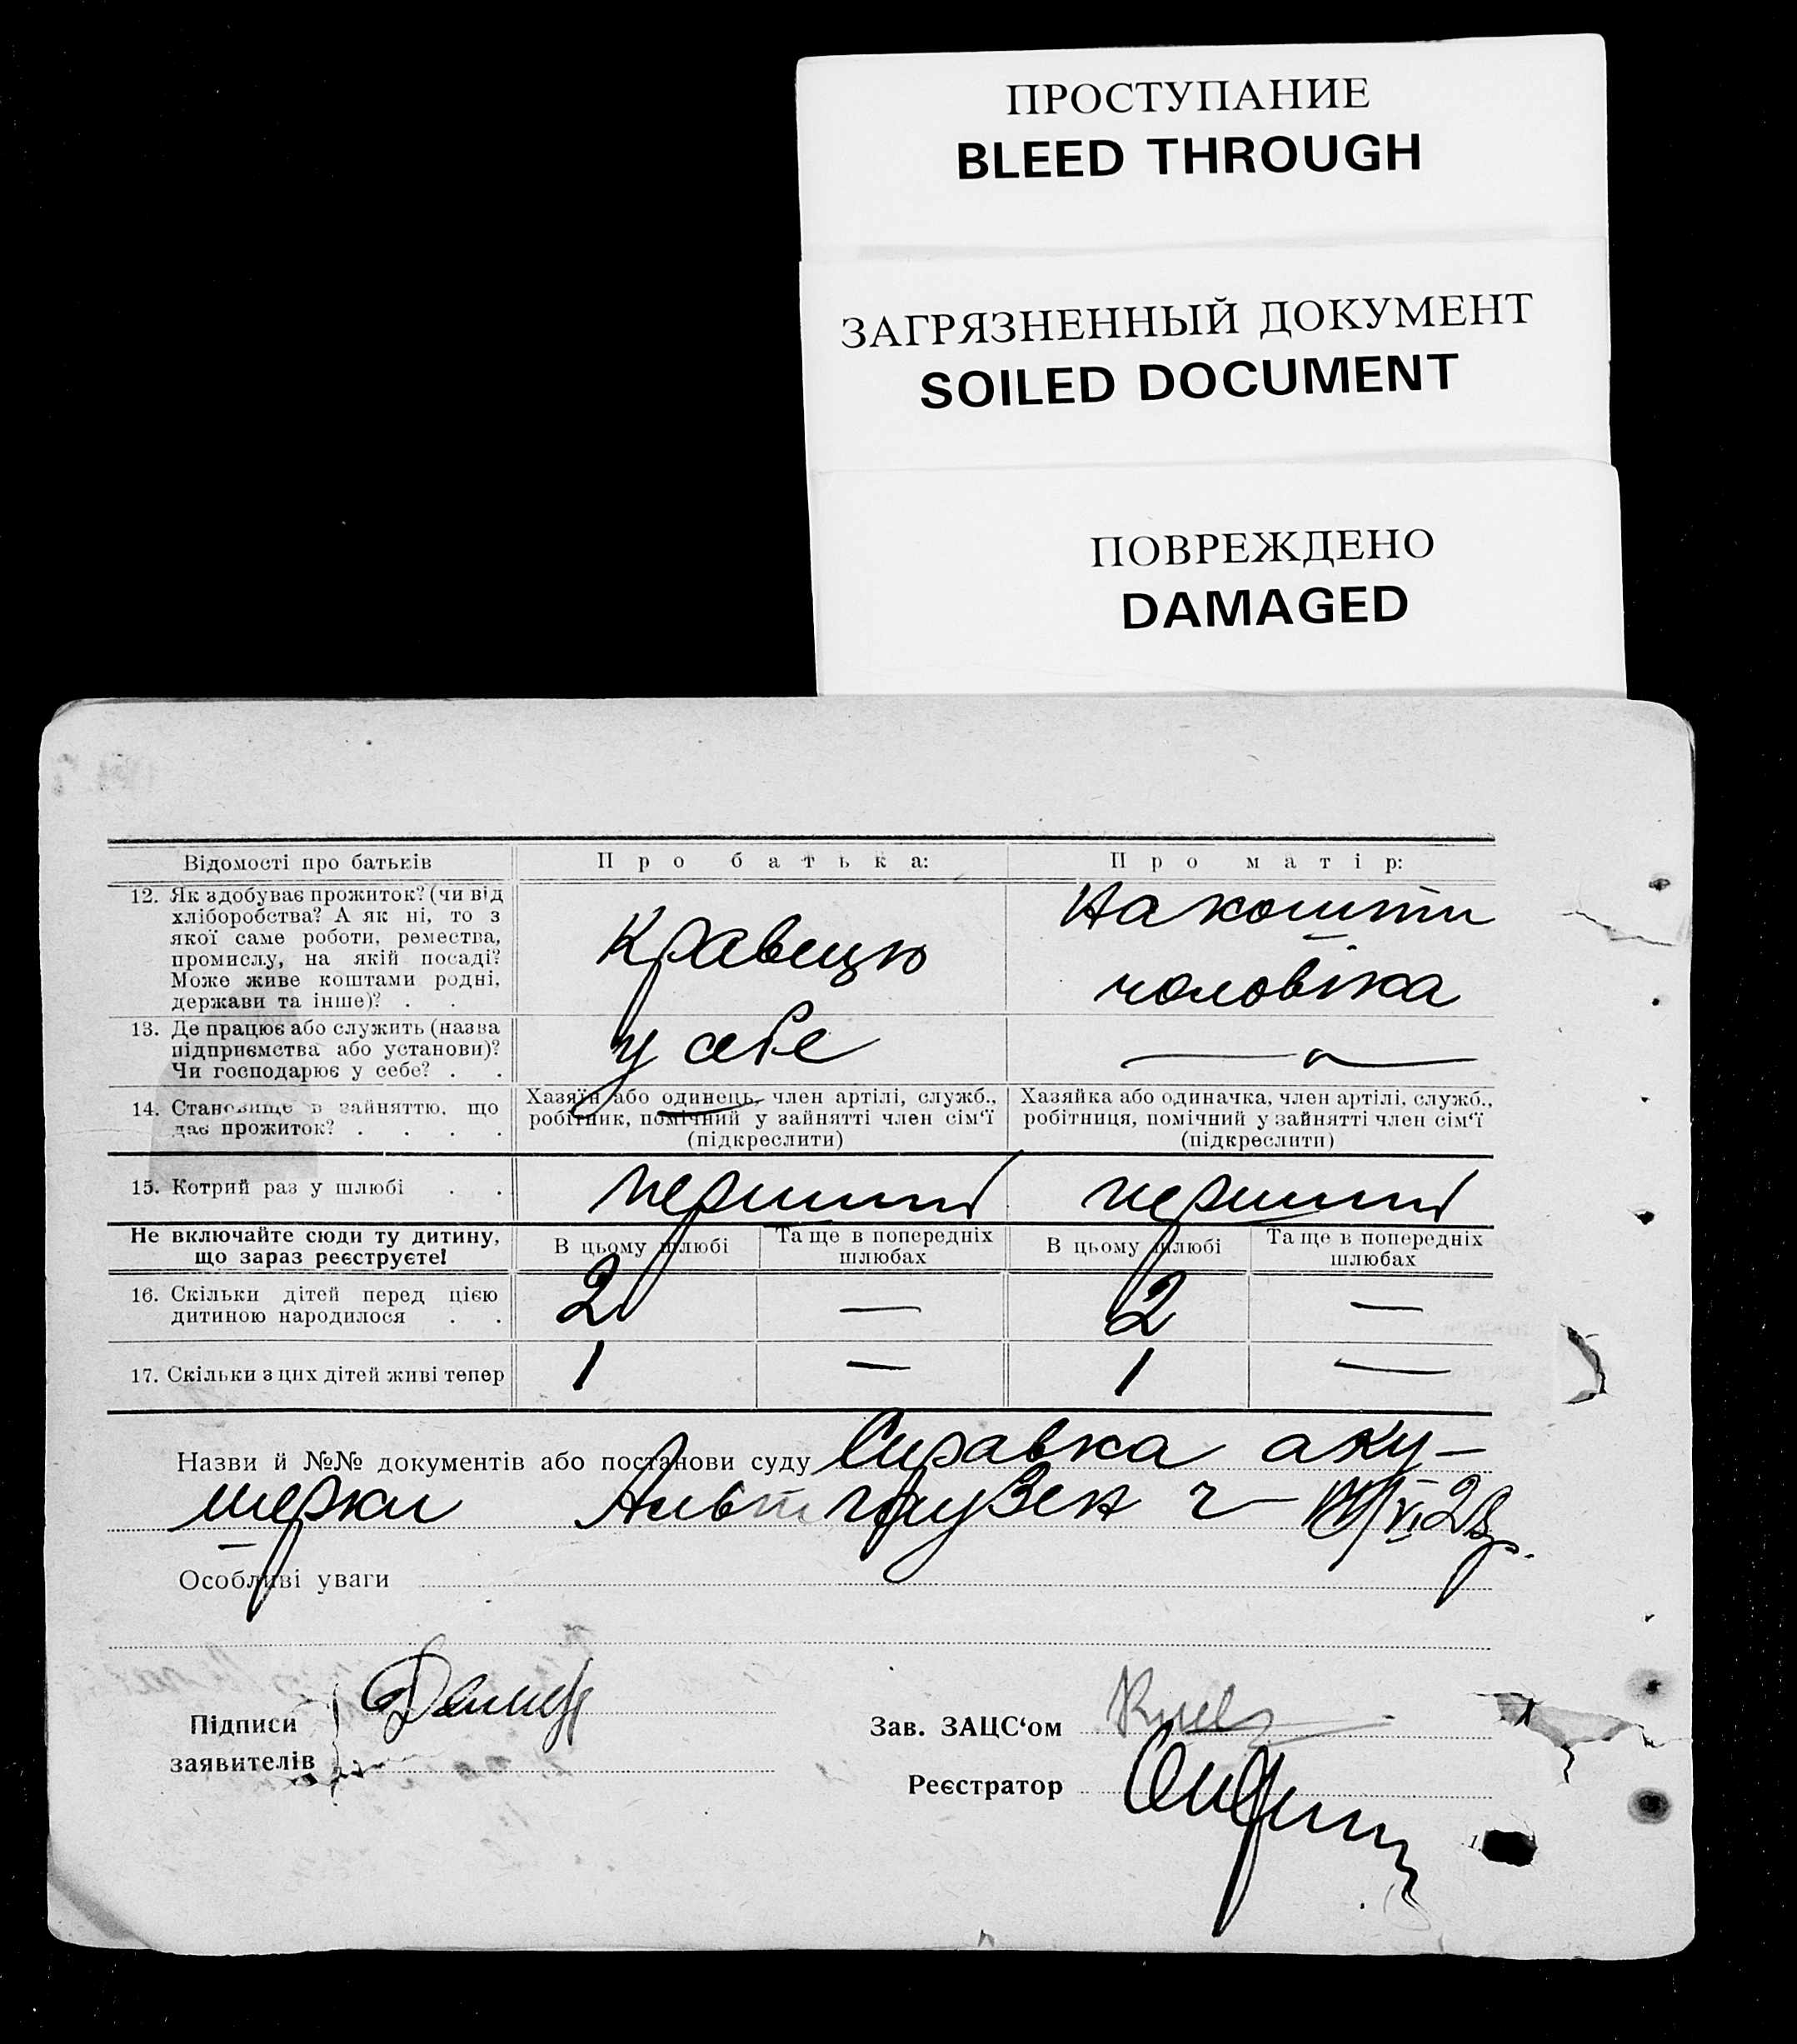 ПРОСТУПАНИЕ
BLEED THROUGH
ЗАГРЯЗНЕННЫЙ ДОКУМЕНТ
SOILED DOCUMENT
ПОВРЕЖДЕНО
DAMAGED
Відомості про батьків Про батька: Про матір:
12. Як здобуває прожиток? (чи від
хліборобства? А як ні, то з
якої саме роботи, ремества,
промислу, на якій посаді?
Може живе коштами родні,
держави та інше)? . .
Кравецю
На кошти
чоловіка
13. Де працює або служить (назва
підприємства або установи)?
Чи господарює у себе? . .
у себе
14. Становище в зайняттю, що
дає прожиток? . . . .
Хазяїн або одинець, член артілі, служб.,
робітник, помічний у зайнятті член сім‘ї
(підкреслити)
Хазяйка або одиначка, член артілі, служб.,
робітниця, помічний у зайнятті член сім‘ї
(підкреслити)
15. Котрий раз у шлюбі . . перший перший
Не включайте сюди ту дитину,
що зараз реєструєте!
В цьому шлюбі
Та ще в попередніх
шлюбах
В цьому шлюбі
Та ще в попередніх
шлюбах
16. Скільки дітей перед цією
дитиною народилося . .
2 — 2 —
17. Скільки з цих дітей живі тепер 1 — 1 —
Назви й №№ документів або постанови суду Справка аку-
шерки
Особливі уваги
Підписи
заявителів
Зав. ЗАЦС‘ом
Реєстратор